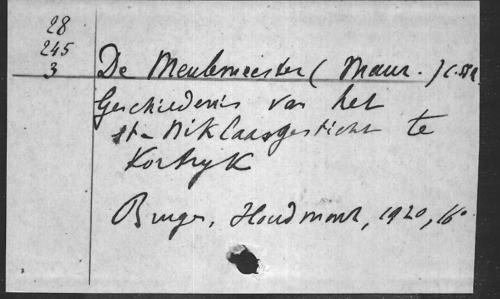 28
245
3
De Meulemeester (Maur.)
Geschiedenis van het
St-Niklaasgesticht te
Kortrijk
Brugge, Houdmont, 1920, 16°